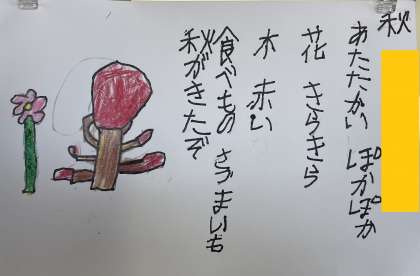 秋
あたたかい ぽかぽか
花 きらきら
木 赤い
食べもの さつまいも
秋がきたぞ